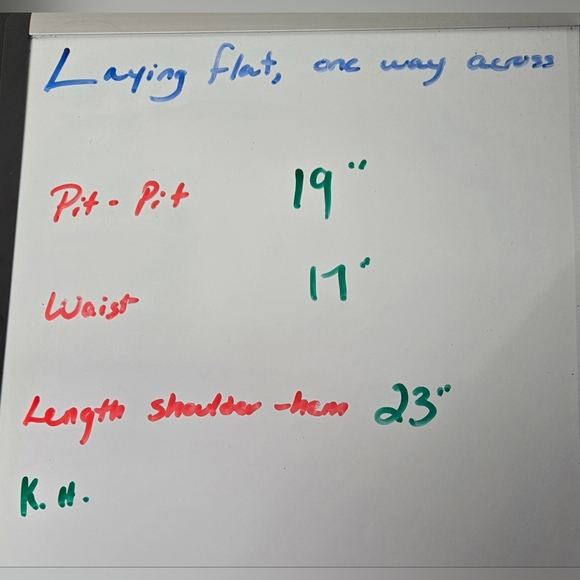 Laying flat, one way across
Pit - Pit 19"
Waist 17"
Length shoulder -hem 23"
K. H.